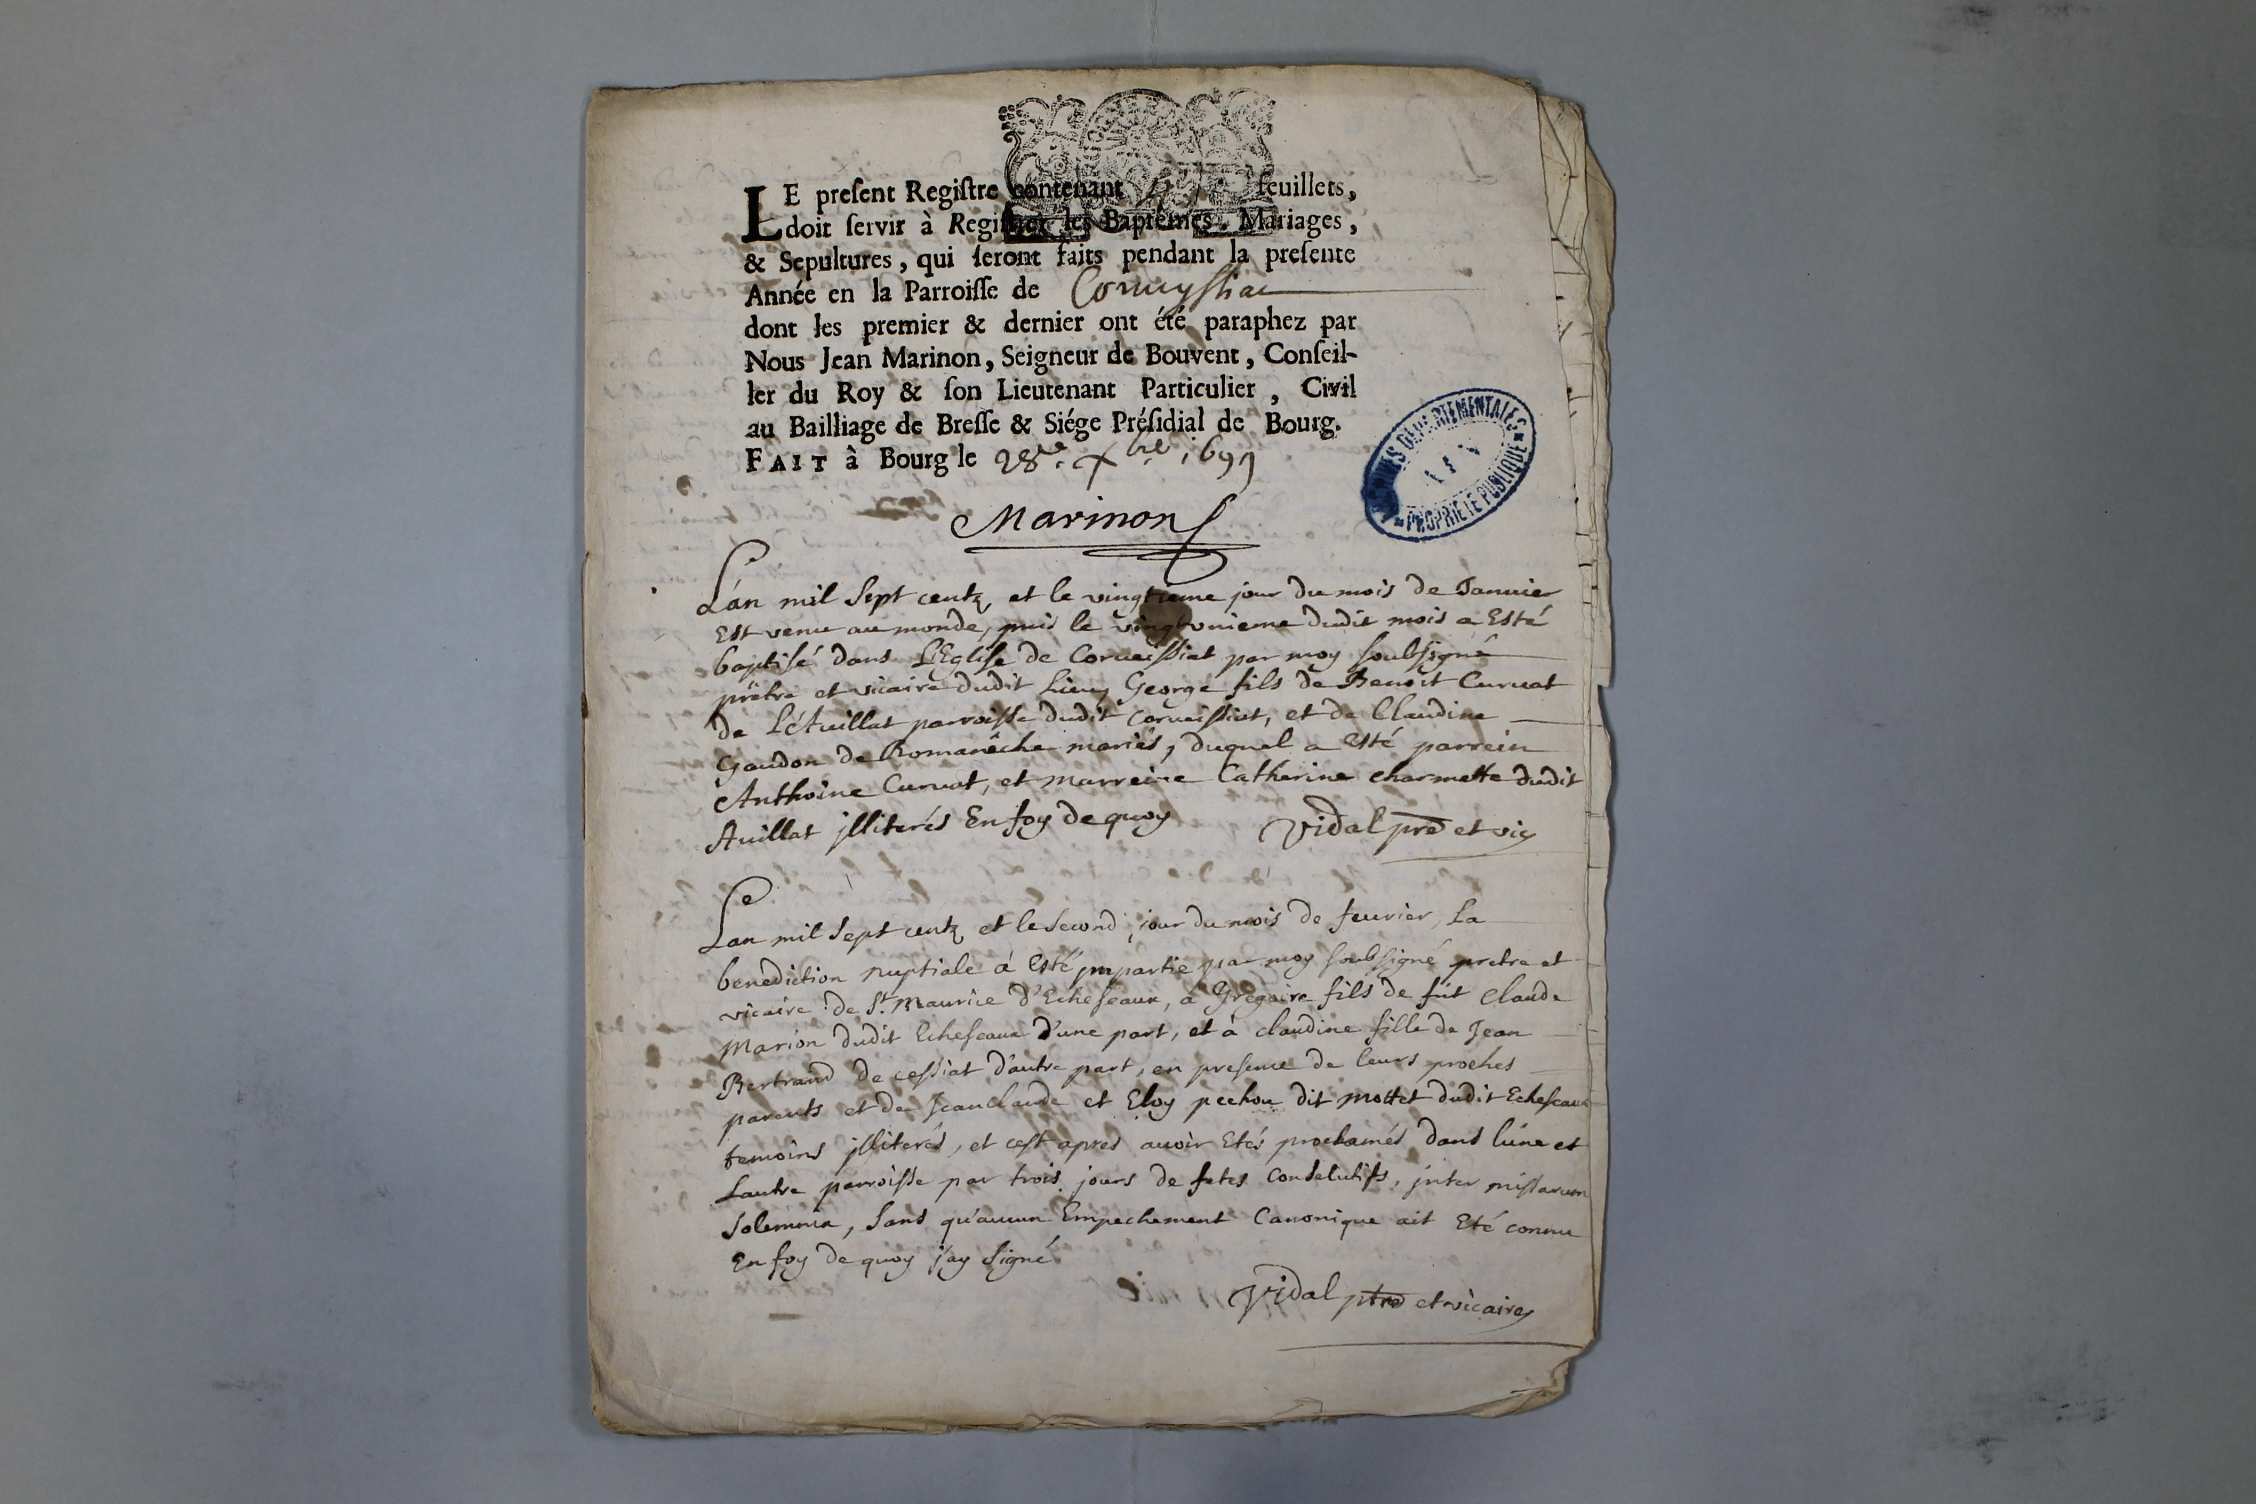 LE present Registre contenant feuillets,
doit servir à Registrer les Baptêmes, Mariages,
& Sepultures, qui seront faits pendant la presente
Année en la Parroisse de Corveyssiac
dont les premier & dernier ont été paraphez par
Nous Jean Marinon, Seigneur de Bouvent, Conseil-
ler du Roy & son Lieutenant Particulier, Civil
au Bailliage de Bresse & Siége Présidial de Bourg.
FAIT à Bourg le 28e. xbre. 1699
Marinon
ARCHIVES DEPARTEMENTALES
AIN
PROPRIETE PUBLIQUE
L'an mil sept centz, et le vingtieme jour du mois de Januier
Est venu au monde, puis le vingtvnieme dudit mois a Esté
baptisé dans L'Eglise de Corveissiat par moy soubsigné
prêtre et vicaire dudit Lieu, George fils de Benoit Curvat
de L'Avillat parroisse dudit corveissiat, et de Claudine
Gaudon de Romanêche mariés, duquel a Esté parrein
Anthoine Curvat, et marreine Catherine charmette dudit
Avillat jlliterés En foy de quoy Vidal pre et vic
Lan mil sept centz et le second jour du mois de feurier, La
benediction nuptiale á Esté jmpartie par moy soubsigné pretre et
vicaire de St. Maurice d'Echeseaux, á Gregoire fils de fût Claude
Marion dudit Echeseaux d'une part, et à claudine fille de Jean
Bertrand de cessiat d'autre part, en presence de leurs proches
parents et de Jeanclaude et Eloy pechou dit Mottet dudit Echeseaux
temoins jlliterés, et cest apres auoir Etés proclamés dans lúne et
Lautre parroisse par trois jours de fetes conselutifs, jnter missarum
solemnia, sans qu'aucun Empechement Canonique ait Eté connu
En foy de quoy j'ay signé
Vidal ptre et vicaire